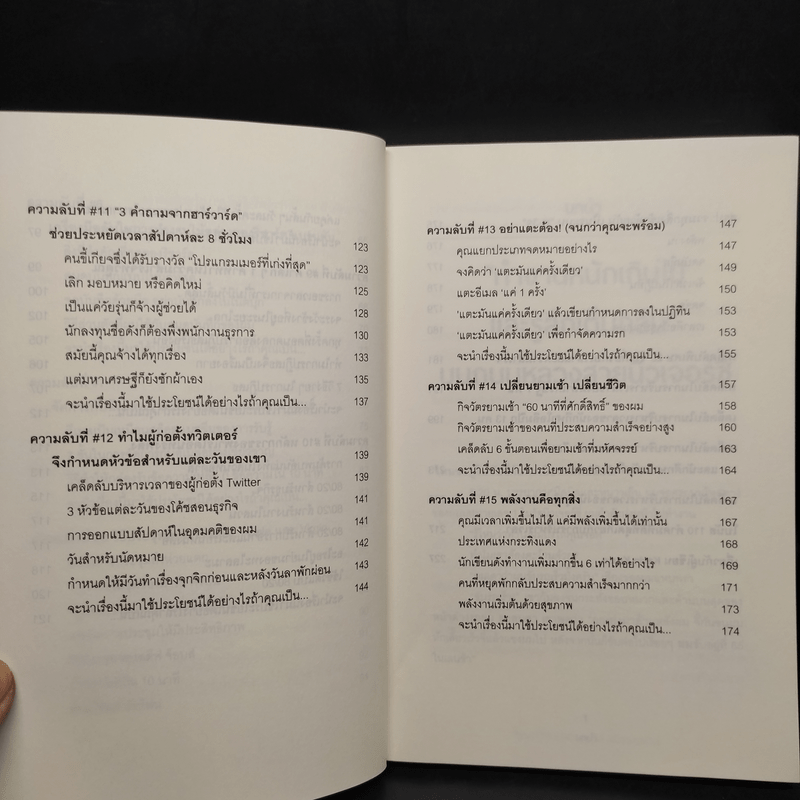 ความลับที่ #11 "3 คำถามจากฮาร์วาร์ด"
ช่วยประหยัดเวลาสัปดาห์ละ 8 ชั่วโมง 123
คนขี้เกียจซึ่งได้รับรางวัล "โปรแกรมเมอร์ที่เก่งที่สุด" 123
เลิก มอบหมาย หรือคิดใหม่ 125
เป็นแค่วัยรุ่นก็จ้างผู้ช่วยได้ 128
นักลงทุนชื่อดังก็ต้องพึ่งพนักงานธุรการ 130
สมัยนี้คุณจ้างได้ทุกเรื่อง 133
แต่มหาเศรษฐีก็ยังซักผ้าเอง 135
จะนำเรื่องนี้มาใช้ประโยชน์ได้อย่างไรถ้าคุณเป็น... 137
ความลับที่ #12 ทำไมผู้ก่อตั้งทวิตเตอร์
จึงกำหนดหัวข้อสำหรับแต่ละวันของเขา 139
เคล็ดลับบริหารเวลาของผู้ก่อตั้ง Twitter 139
3 หัวข้อแต่ละวันของโค้ชสอนธุรกิจ 141
การออกแบบสัปดาห์ในอุดมคติของผม 141
วันสำหรับนัดหมาย 142
กำหนดให้มีวันทำเรื่องจุกจิกก่อนและหลังวันลาพักผ่อน 143
จะนำเรื่องนี้มาใช้ประโยชน์ได้อย่างไรถ้าคุณเป็น... 144
ความลับที่ #13 อย่าแตะต้อง! (จนกว่าคุณจะพร้อม) 147
คุณแยกประเภทจดหมายอย่างไร 147
จงคิดว่า 'แตะมันแค่ครั้งเดียว' 149
แตะอีเมล 'แค่ 1 ครั้ง' 150
'แตะมันแค่ครั้งเดียว' แล้วเขียนกำหนดการลงในปฏิทิน 153
'แตะมันแค่ครั้งเดียว' เพื่อกำจัดความรก 153
จะนำเรื่องนี้มาใช้ประโยชน์ได้อย่างไรถ้าคุณเป็น... 155
ความลับที่ #14 เปลี่ยนยามเช้า เปลี่ยนชีวิต 157
กิจวัตรยามเช้า "60 นาทีที่ศักดิ์สิทธิ์" ของผม 158
กิจวัตรยามเช้าของคนที่ประสบความสำเร็จอย่างสูง 160
เคล็ดลับ 6 ขั้นตอนเพื่อยามเช้าที่มหัศจรรย์ 163
จะนำเรื่องนี้มาใช้ประโยชน์ได้อย่างไรถ้าคุณเป็น... 164
ความลับที่ #15 พลังงานคือทุกสิ่ง 167
คุณมีเวลาเพิ่มขึ้นไม่ได้ แค่มีพลังเพิ่มขึ้นได้เท่านั้น 167
ประเทศแห่งกระทิงแดง 168
นักเขียนดังทำงานเพิ่มมากขึ้น 6 เท่าได้อย่างไร 169
คนที่หยุดพักกลับประสบความสำเร็จมากกว่า 171
พลังงานเริ่มต้นด้วยสุขภาพ 173
จะนำเรื่องนี้มาใช้ประโยชน์ได้อย่างไรถ้าคุณเป็น... 174